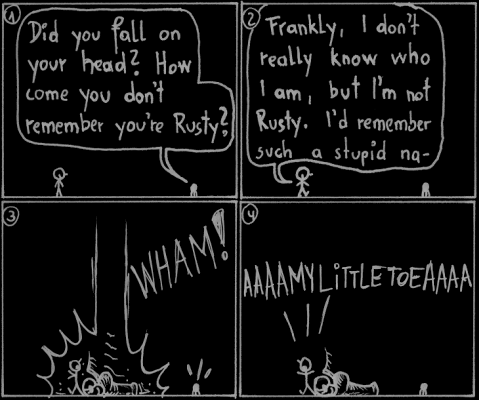 1
Did you fall on
your head? How
come you don't
remember you're Rusty?
2
Frankly, I don't
really know who
I am, but I'm not
Rusty. I'd remember
such a stupid na-
3
WHAM!
4
AAAAMYLiTTLETOEAAAA